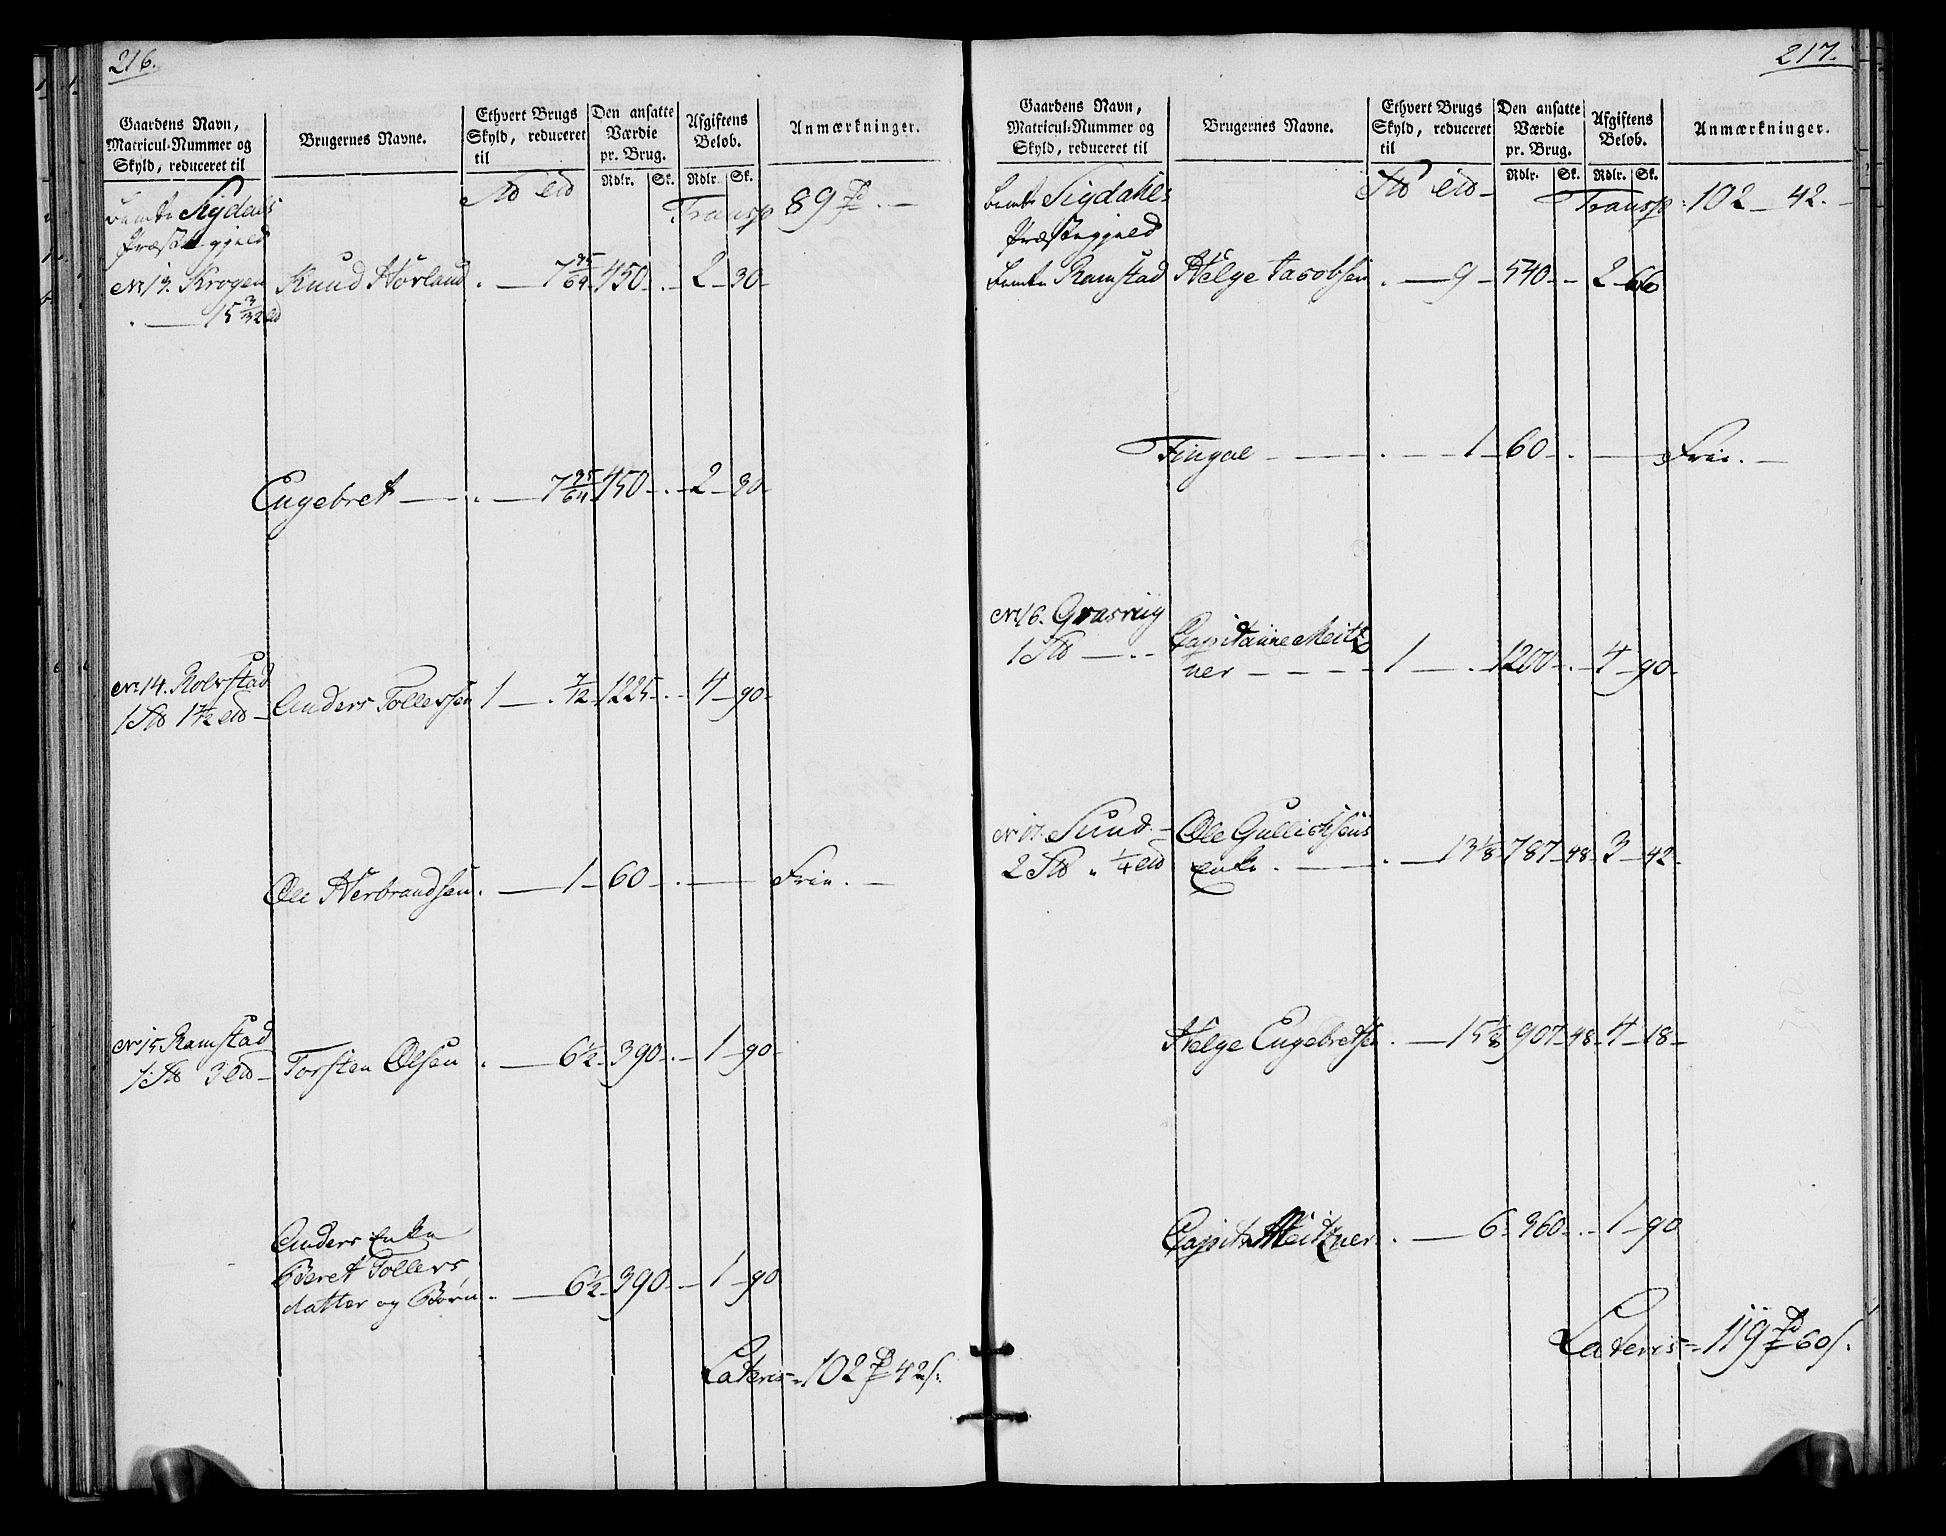 216.
Gaardens Navn,
Matricul-Nummer og
Skyld, reduceret til
Brugernes Navne.
Ethvert Brugs
Skyld, reduceret
til
Den ansatte
Værdie
pr. Brug.
Rdlr. Sk.
Afgiftens
Beløb.
Rdlr. Sk.
Anmærkninger.
Sigdals
Præstegjeld
Transp 89
No 13. Krogen Knud Hovland 7 25/64 450 2 30
15 3/32
Engebret 7 25/64 450 2 30
No 14. Rolvstad Anders Tollefsen 1 7/12 1225 4 90
Ole Herbrandsen 1 60 Frie.
No 15 Ramstad Torsten Olsen 6 1/2 390 1 90
Anders Enke
Beret Tollevs
datter og Børn 6 1/2 390 1 90
Lateris 102 42 s.
217.
Gaardens Navn,
Matricul-Nummer og
Skyld, reduceret til
Brugernes Navne.
Ethvert Brugs
Skyld, reduceret
til
Den ansatte
Værdie
pr. Brug.
Rdlr. Sk.
Afgiftens
Beløb.
Rdlr. Sk.
Anmærkninger.
Sigdahls
Præstegjeld
Transp: 102 42.
Ramstad Helge Jacobsen 9 540 2 66
1 60 Frie.
No 16. Capitaine Meitz
ner 1 1200 4 90
No 17. Sund Ole Gullichsens
Enke 13 1/8 787 48 3 42
Helge Engebretsen 15 1/8 907 48 4 18
Capit: Meitzner 6 360 1 90
Lateris 119 60 s.